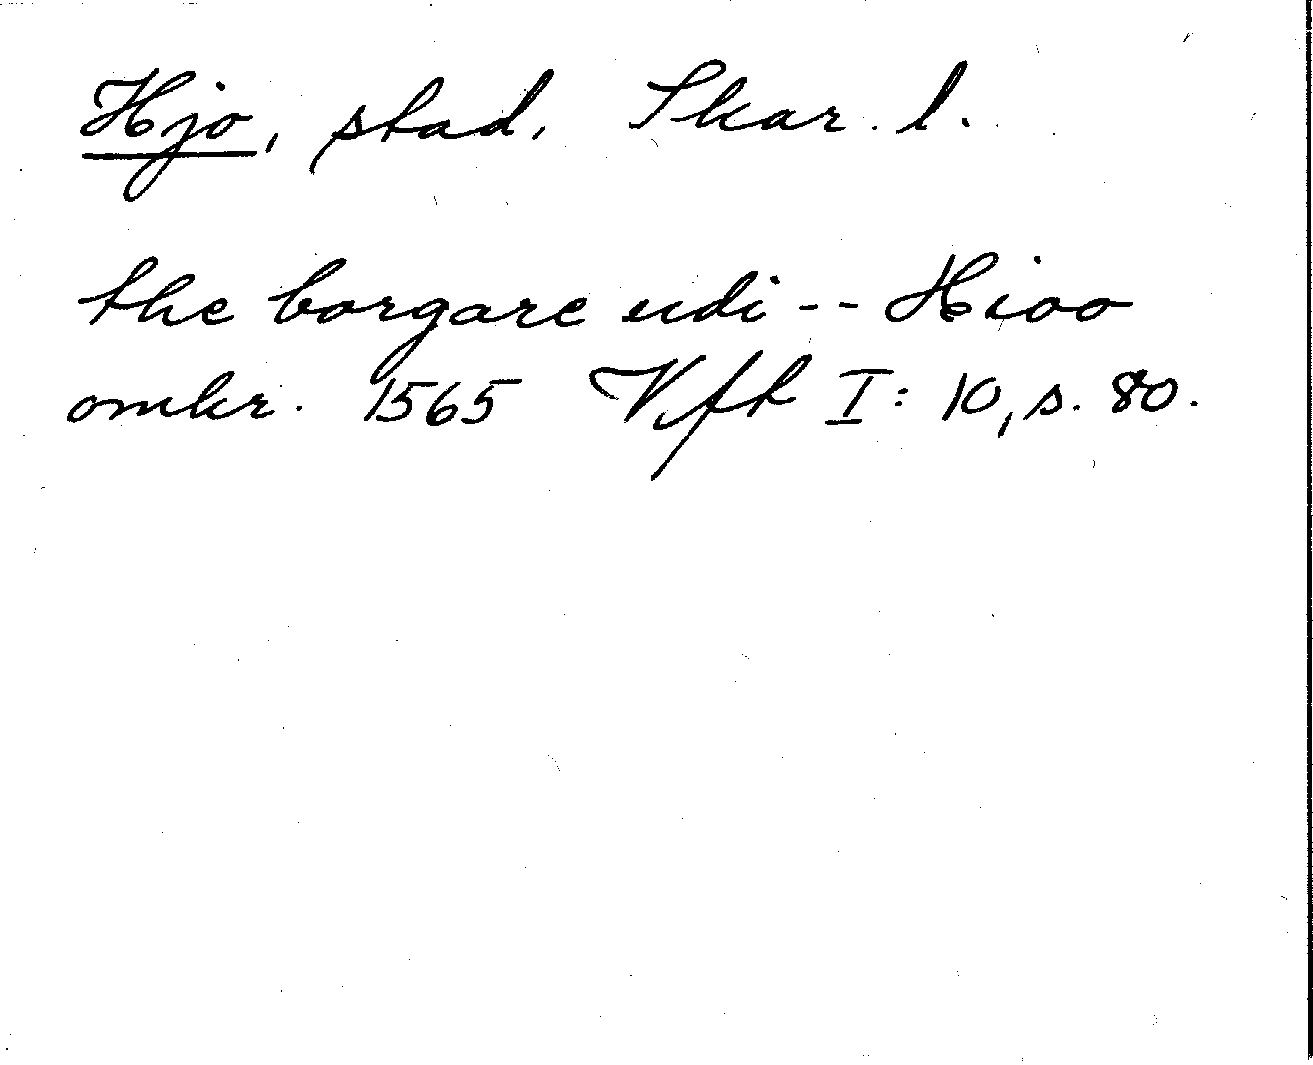 Hjo, stad. Skar. l.
the borgare udi -- Hioo
omkr. 1565 Vft I: 10, s. 80.